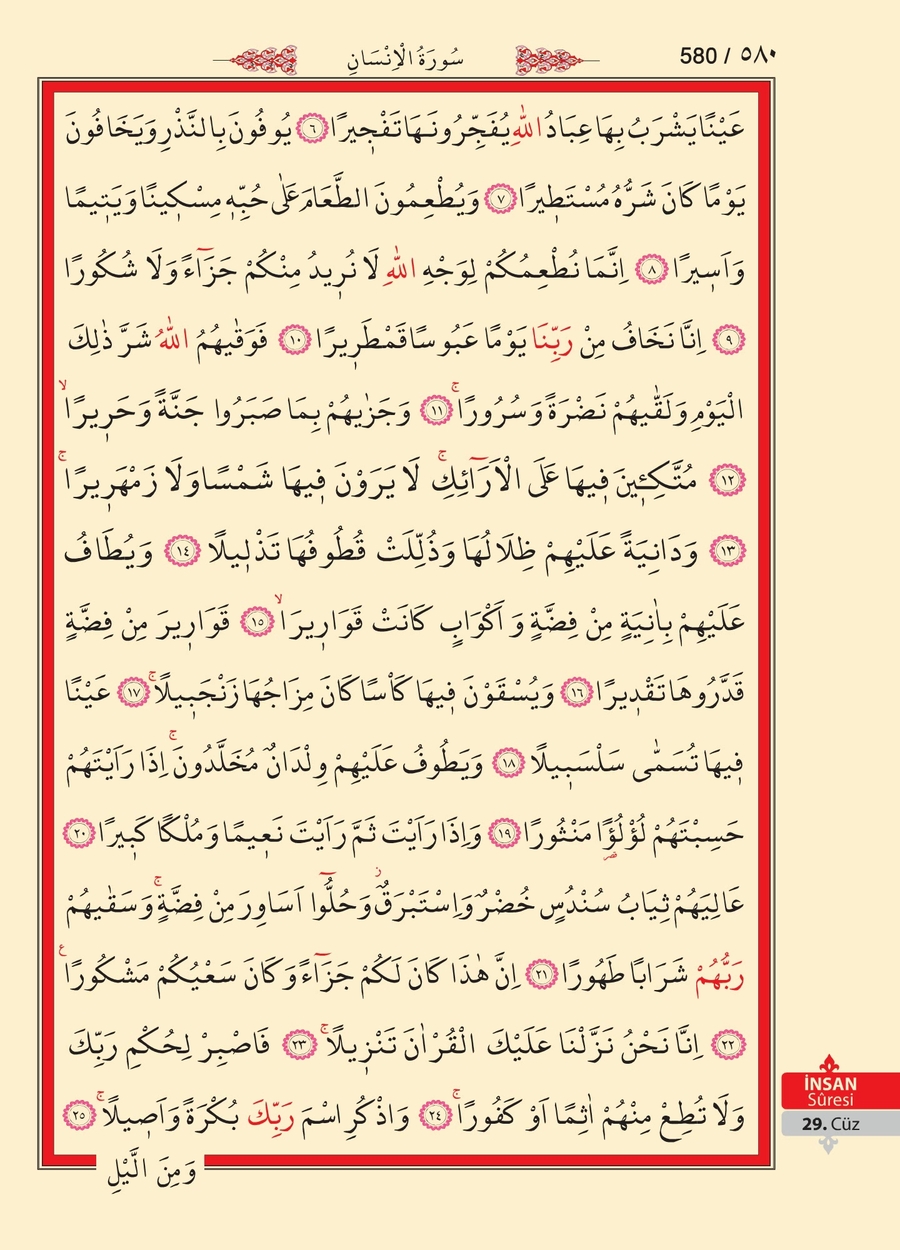 سُورَةُ الْاِنْسَانِ
580 / ٥٨٠
عَيْنًا يَشْرَبُ بِهَا عِبَادُ اللّٰهِ يُفَجِّرُونَهَا تَفْجِيرًا ٦ يُوفُونَ بِالنَّذْرِ وَيَخَافُونَ
يَوْمًا كَانَ شَرُّهُ مُسْتَطِيرًا ٧ وَيُطْعِمُونَ الطَّعَامَ عَلٰى حُبِّهٖ مِسْكِينًا وَيَتِيمًا
وَاَسِيرًا ٨ اِنَّمَا نُطْعِمُكُمْ لِوَجْهِ اللّٰهِ لَا نُرِيدُ مِنْكُمْ جَزَٓاءً وَلَا شُكُورًا
٩ اِنَّا نَخَافُ مِنْ رَبِّنَا يَوْمًا عَبُوسًا قَمْطَرِيرًا ١٠ فَوَقٰيهُمُ اللّٰهُ شَرَّ ذٰلِكَ
الْيَوْمِ وَلَقّٰيهُمْ نَضْرَةً وَسُرُورًاۚ ١١ وَجَزٰيهُمْ بِمَا صَبَرُوا جَنَّةً وَحَرِيرًاۙ
١٢ مُتَّكِـِٔينَ فِيهَا عَلَى الْاَرَٓائِكِۚ لَا يَرَوْنَ فِيهَا شَمْسًا وَلَا زَمْهَرِيرًاۚ
١٣ وَدَانِيَةً عَلَيْهِمْ ظِلَالُهَا وَذُلِّلَتْ قُطُوفُهَا تَذْلِيلًا ١٤ وَيُطَافُ
عَلَيْهِمْ بِاٰنِيَةٍ مِنْ فِضَّةٍ وَ اَكْوَابٍ كَانَتْ قَوَارِيرَا۬ۙ ١٥ قَوَارِيرَ مِنْ فِضَّةٍ
قَدَّرُوهَا تَقْدِيرًا ١٦ وَيُسْقَوْنَ فِيهَا كَاْسًا كَانَ مِزَاجُهَا زَنْجَبِيلًاۚ ١٧ عَيْنًا
فِيهَا تُسَمّٰى سَلْسَبِيلًا ١٨ وَيَطُوفُ عَلَيْهِمْ وِلْدَانٌ مُخَلَّدُونَۚ اِذَا رَاَيْتَهُمْ
حَسِبْتَهُمْ لُؤْلُؤًا مَنْثُورًا ١٩ وَاِذَا رَاَيْتَ ثَمَّ رَاَيْتَ نَعِيمًا وَمُلْكًا كَبِيرًا ٢٠
عَالِيَهُمْ ثِيَابُ سُنْدُسٍ خُضْرٌ وَاِسْتَبْرَقٌۘ وَحُلُّٓوا اَسَاوِرَ مِنْ فِضَّةٍۚ وَسَقٰيهُمْ
رَبُّهُمْ شَرَابًا طَهُورًا ٢١ اِنَّ هٰذَا كَانَ لَكُمْ جَزَٓاءً وَكَانَ سَعْيُكُمْ مَشْكُورًا ع
٢٢ اِنَّا نَحْنُ نَزَّلْنَا عَلَيْكَ الْقُرْاٰنَ تَنْزِيلًاۚ ٢٣ فَاصْبِرْ لِحُكْمِ رَبِّكَ
وَلَا تُطِعْ مِنْهُمْ اٰثِمًا اَوْ كَفُورًاۚ ٢٤ وَاذْكُرِ اسْمَ رَبِّكَ بُكْرَةً وَاَصِيلًاۚ ٢٥
وَمِنَ الَّيْلِ
İNSAN
Sûresi
29. Cüz